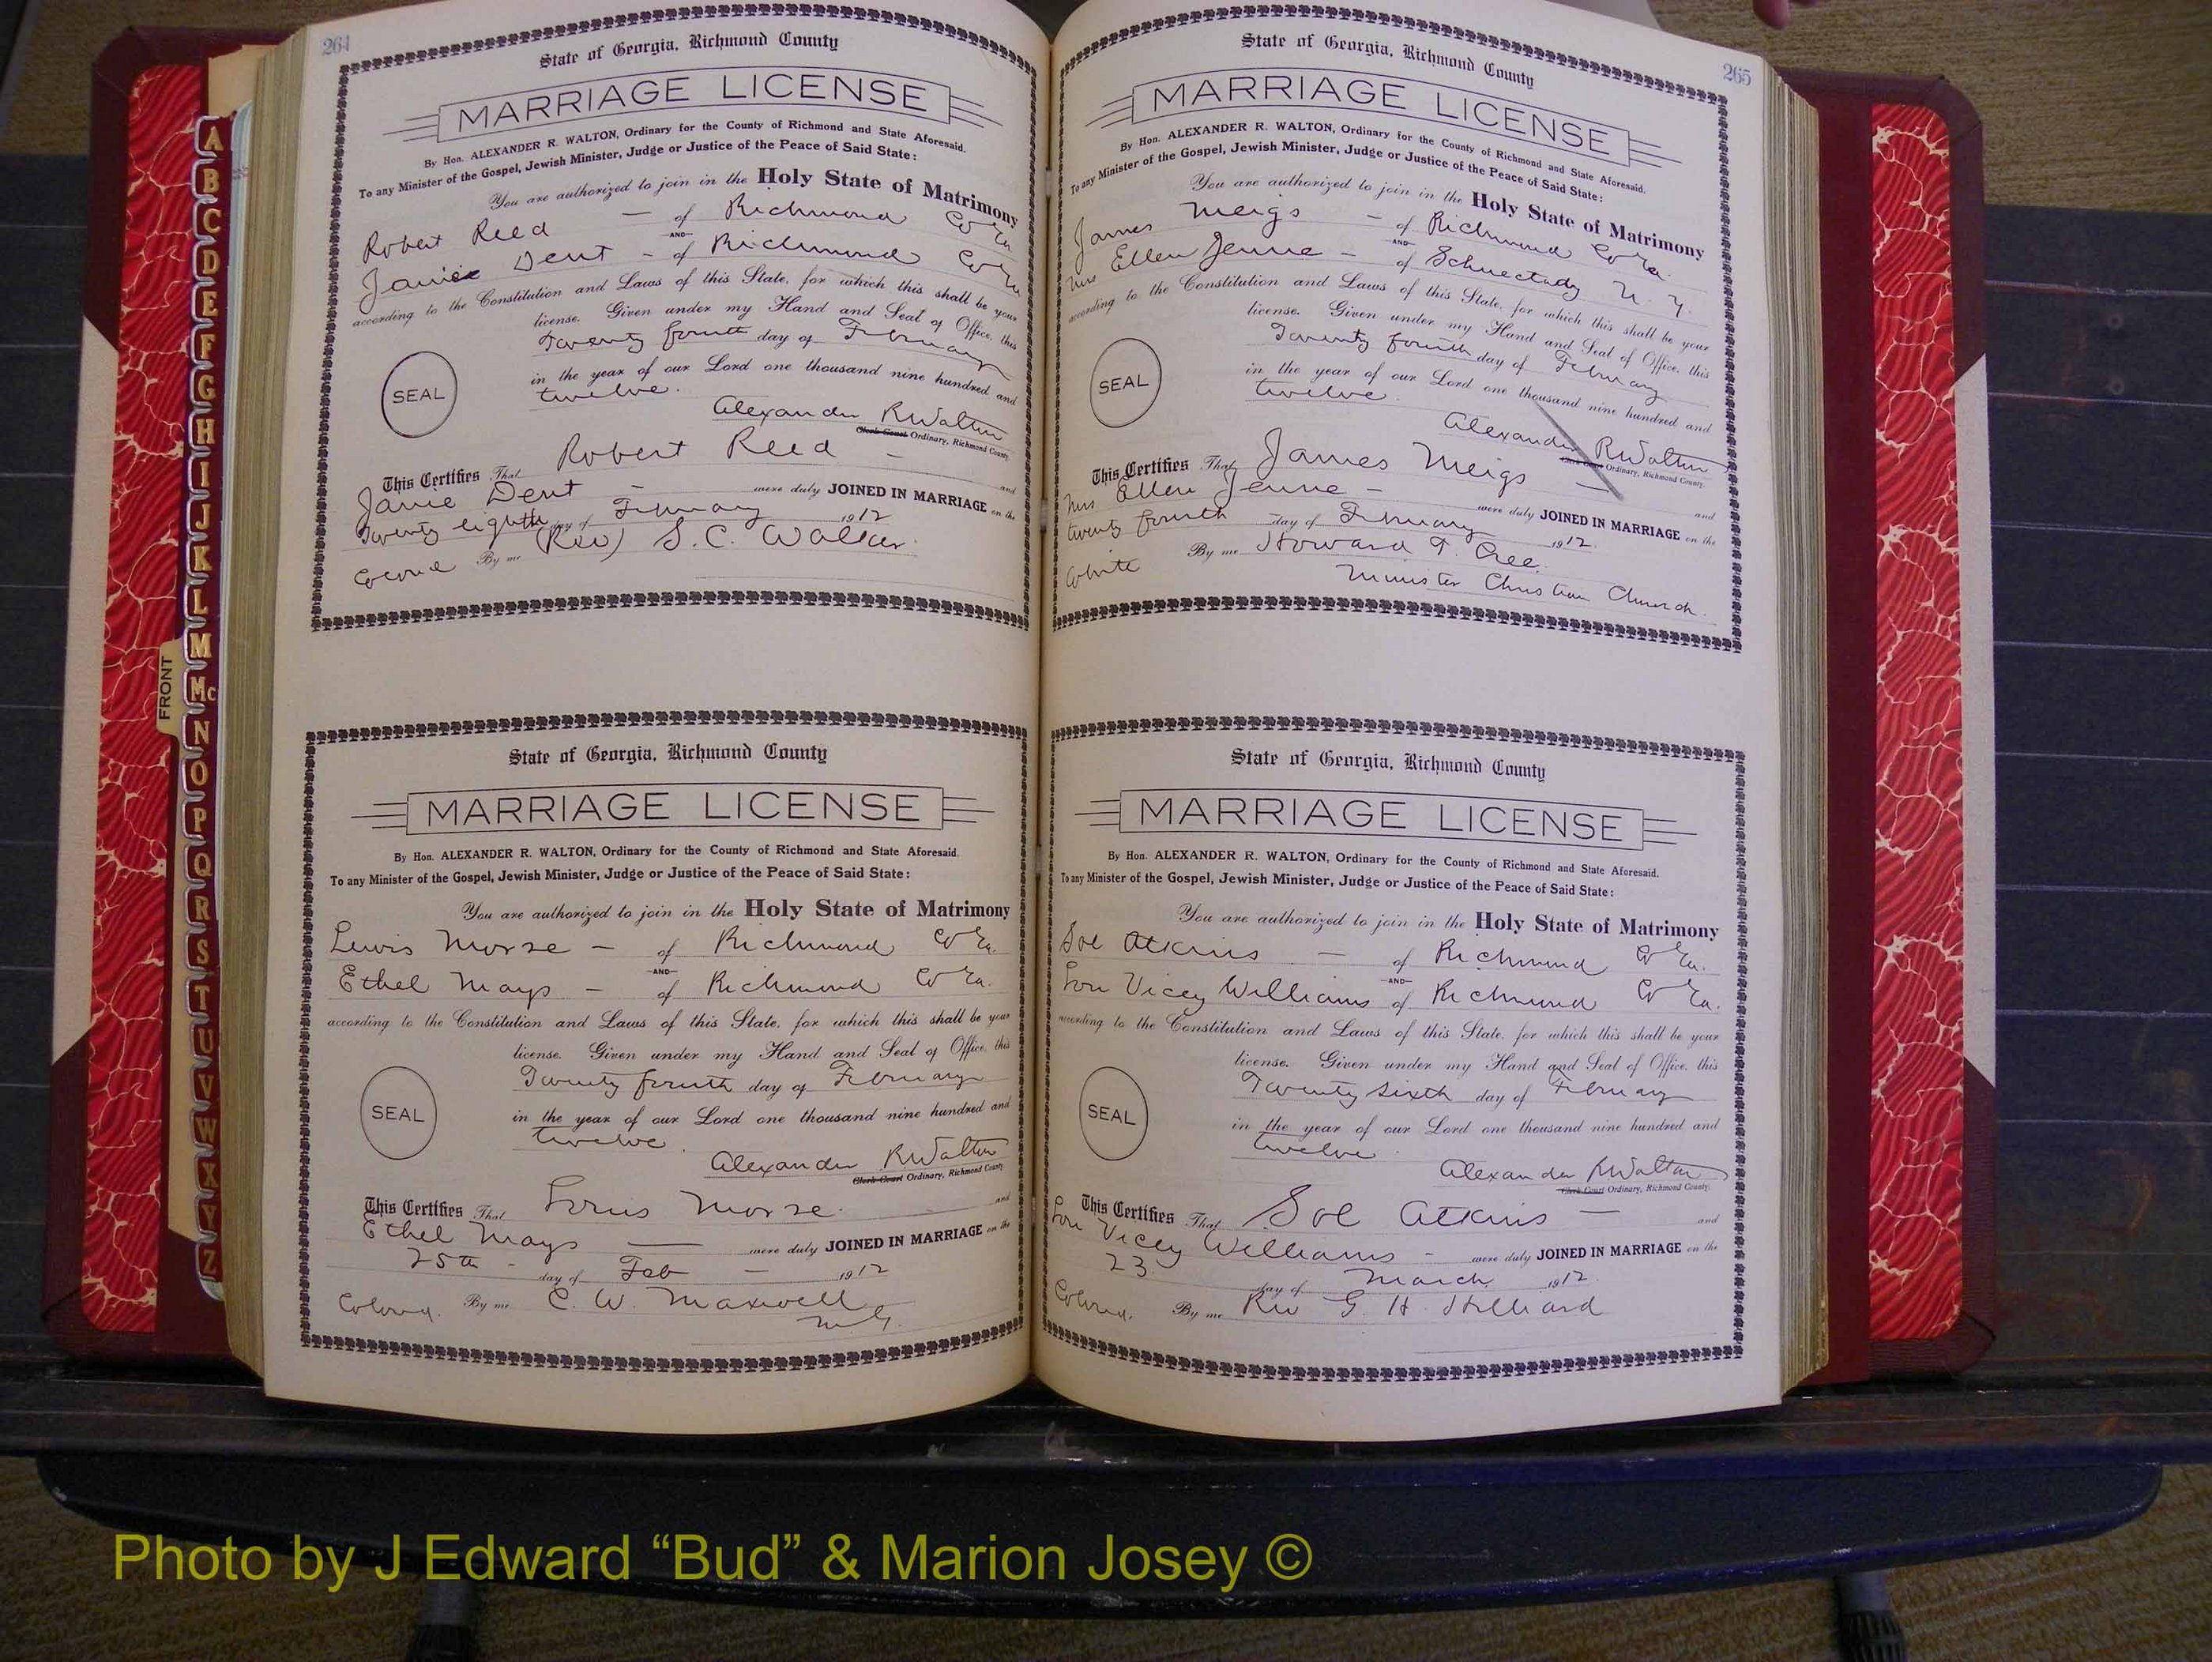 264
State of Georgia, Richmond County
MARRIAGE LICENSE
By Hon. ALEXANDER R. WALTON, Ordinary for the County of Richmond and State Aforesaid.
To any Minister of the Gospel, Jewish Minister, Judge or Justice of the Peace of Said State:
You are authorized to join in the Holy State of Matrimony
Robert Reed — of Richmond Co Ga
AND
Janie Dent - of Richmond Co Ga
according to the Constitution and Laws of this State, for which this shall be your
license. Given under my Hand and Seal of Office, this
Twenty fourth day of February
in the year of our Lord one thousand nine hundred and
twelve.
SEAL
Alexander R Walton
Clerk Court Ordinary, Richmond County.
This Certifies That Robert Reed — and
Janie Dent — were duly JOINED IN MARRIAGE on the
Twenty eighth day of February 1912
By me (Rev) S. C. Walker
State of Georgia, Richmond County
MARRIAGE LICENSE
By Hon. ALEXANDER R. WALTON, Ordinary for the County of Richmond and State Aforesaid.
To any Minister of the Gospel, Jewish Minister, Judge or Justice of the Peace of Said State:
You are authorized to join in the Holy State of Matrimony
Lewis Morse — of Richmond Co Ga.
AND
Ethel Mays — of Richmond Co Ga.
according to the Constitution and Laws of this State, for which this shall be your
license. Given under my Hand and Seal of Office, this
Twenty fourth day of February
in the year of our Lord one thousand nine hundred and
twelve.
SEAL
Alexander R Walton
Clerk Court Ordinary, Richmond County.
This Certifies That Morse. and
Ethel Mays — were duly JOINED IN MARRIAGE on the
25th - day of Feb — 1912
Colored. By me C. W. Maxwell
M.G.
265
State of Georgia, Richmond County
MARRIAGE LICENSE
By Hon. ALEXANDER R. WALTON, Ordinary for the County of Richmond and State Aforesaid.
To any Minister of the Gospel, Jewish Minister, Judge or Justice of the Peace of Said State:
You are authorized to join in the Holy State of Matrimony
James Meigs - of Richmond Co Ga.
AND
Mrs Ellen Jenne - of Schnectady N. Y.
according to the Constitution and Laws of this State, for which this shall be your
license. Given under my Hand and Seal of Office, this
Twenty fourth day of February
in the year of our Lord one thousand nine hundred and
twelve.
SEAL
Alexander R Walton
Clerk Court Ordinary, Richmond County.
This Certifies That James Meigs — and
Mrs Ellen Jenne — were duly JOINED IN MARRIAGE on the
twenty fourth day of February 1912.
White By me Howard T. Cree.
Minister Christian Church.
State of Georgia, Richmond County
MARRIAGE LICENSE
By Hon. ALEXANDER R. WALTON, Ordinary for the County of Richmond and State Aforesaid.
To any Minister of the Gospel, Jewish Minister, Judge or Justice of the Peace of Said State:
You are authorized to join in the Holy State of Matrimony
Sol Atkins — of Richmond Co Ga.
AND
Lou Vicey Williams of Richmond Co Ga.
according to the Constitution and Laws of this State, for which this shall be your
license. Given under my Hand and Seal of Office, this
Twenty sixth day of February
in the year of our Lord one thousand nine hundred and
twelve.
SEAL
Alexander R Walton
Clerk Court Ordinary, Richmond County.
This Certifies That Sol Atkins — and
Lou Vicey Williams - were duly JOINED IN MARRIAGE on the
23. day of March 1912.
Colored. By me Rev G. H. Hilliard
A
B
C
D
E
F
G
H
I
J
K
L
M
Mc
N
O
P
Q
R
S
T
U
V
W
X
Y
Z
FRONT
Photo by J Edward “Bud” & Marion Josey ©